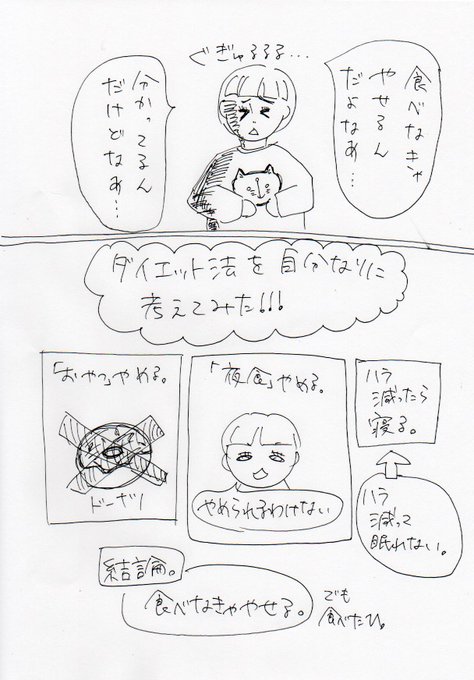 ぐぎゅるるる…
食べなきゃ
やせるん
だよなあ…
分かってるん
だけどなあ…
ダイエット法を自分なりに
考えてみた!!!
「おやつ」やめる。
ドーナツ
「夜食」やめる。
やめられるわけない
ハラ
減ったら
寝る。
ハラ
減って
眠れない。
結論。
食べなきゃやせる。
でも
食べたひ。